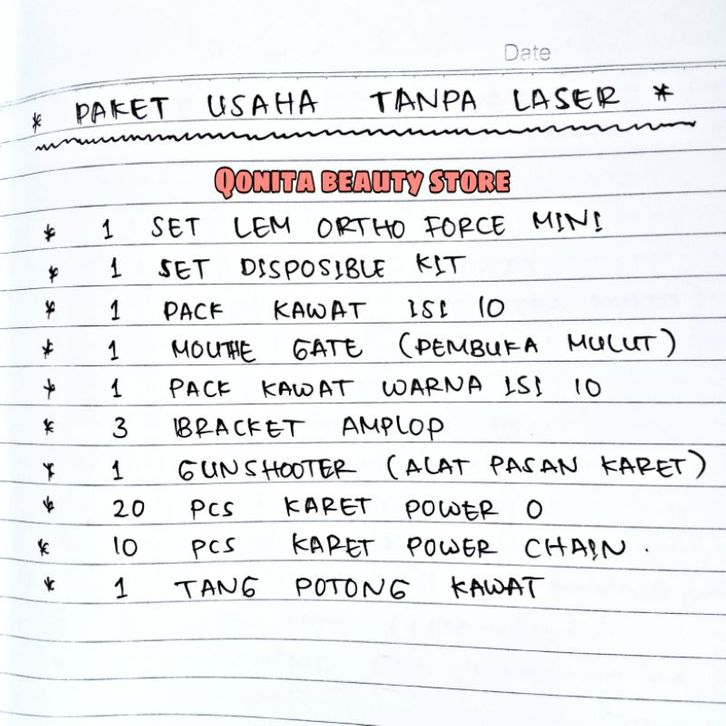 Date
* PAKET USAHA TANPA LASER *
QONITA BEAUTY STORE
* 1 SET LEM ORTHO FORCE MINI
* 1 SET DISPOSIBLE KIT
* 1 PACK KAWAT ISI 10
* 1 MOUTHE GATE (PEMBUKA MULUT)
* 1 PACK KAWAT WARNA ISI 10
* 3 BRACKET AMPLOP
* 1 GUNSHOOTER (ALAT PASAN KARET)
* 20 PCS KARET POWER O
* 10 PCS KARET POWER CHAIN.
* 1 TANG POTONG KAWAT